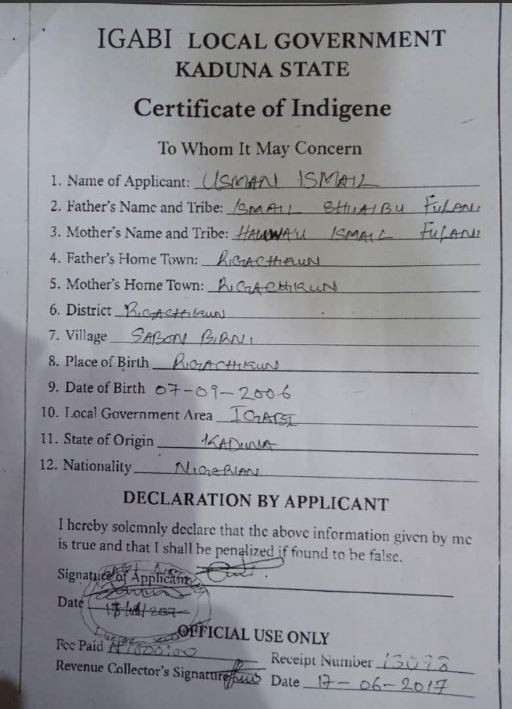 IGABI LOCAL GOVERNMENT
KADUNA STATE
Certificate of Indigene
To Whom It May Concern
1. Name of Applicant: USMAN ISMAIL
2. Father's Name and Tribe: ISMAIL SHUAIBU FULANI
3. Mother's Name and Tribe: HAUWA'U ISMAIL FULANI
4. Father's Home Town: RIGACHIKUN
5. Mother's Home Town: RIGACHIKUN
6. District RIGACHIKUN
7. Village SABON BIRNI
8. Place of Birth RIGACHIKUN
9. Date of Birth 07-09-2006
10. Local Government Area IGABI
11. State of Origin KADUNA
12. Nationality NIGERIAN
DECLARATION BY APPLICANT
I hereby solemnly declare that the above information given by me
is true and that I shall be penalized if found to be false.
Signature of Applicant
Date
OFFICIAL USE ONLY
Fee Paid
Receipt Number 13098
Revenue Collector's Signature Date 17-06-2017